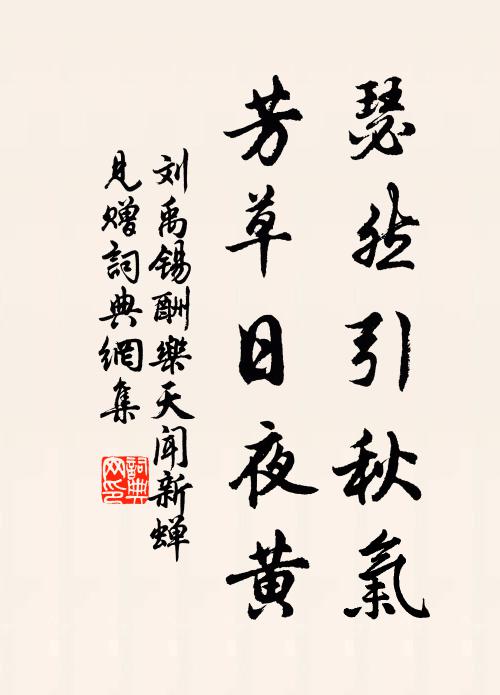 瑟然引秋氣
芳草日夜黄
刘禹锡酬樂天闻新蝉
見赠詞典網集
詞典
网印